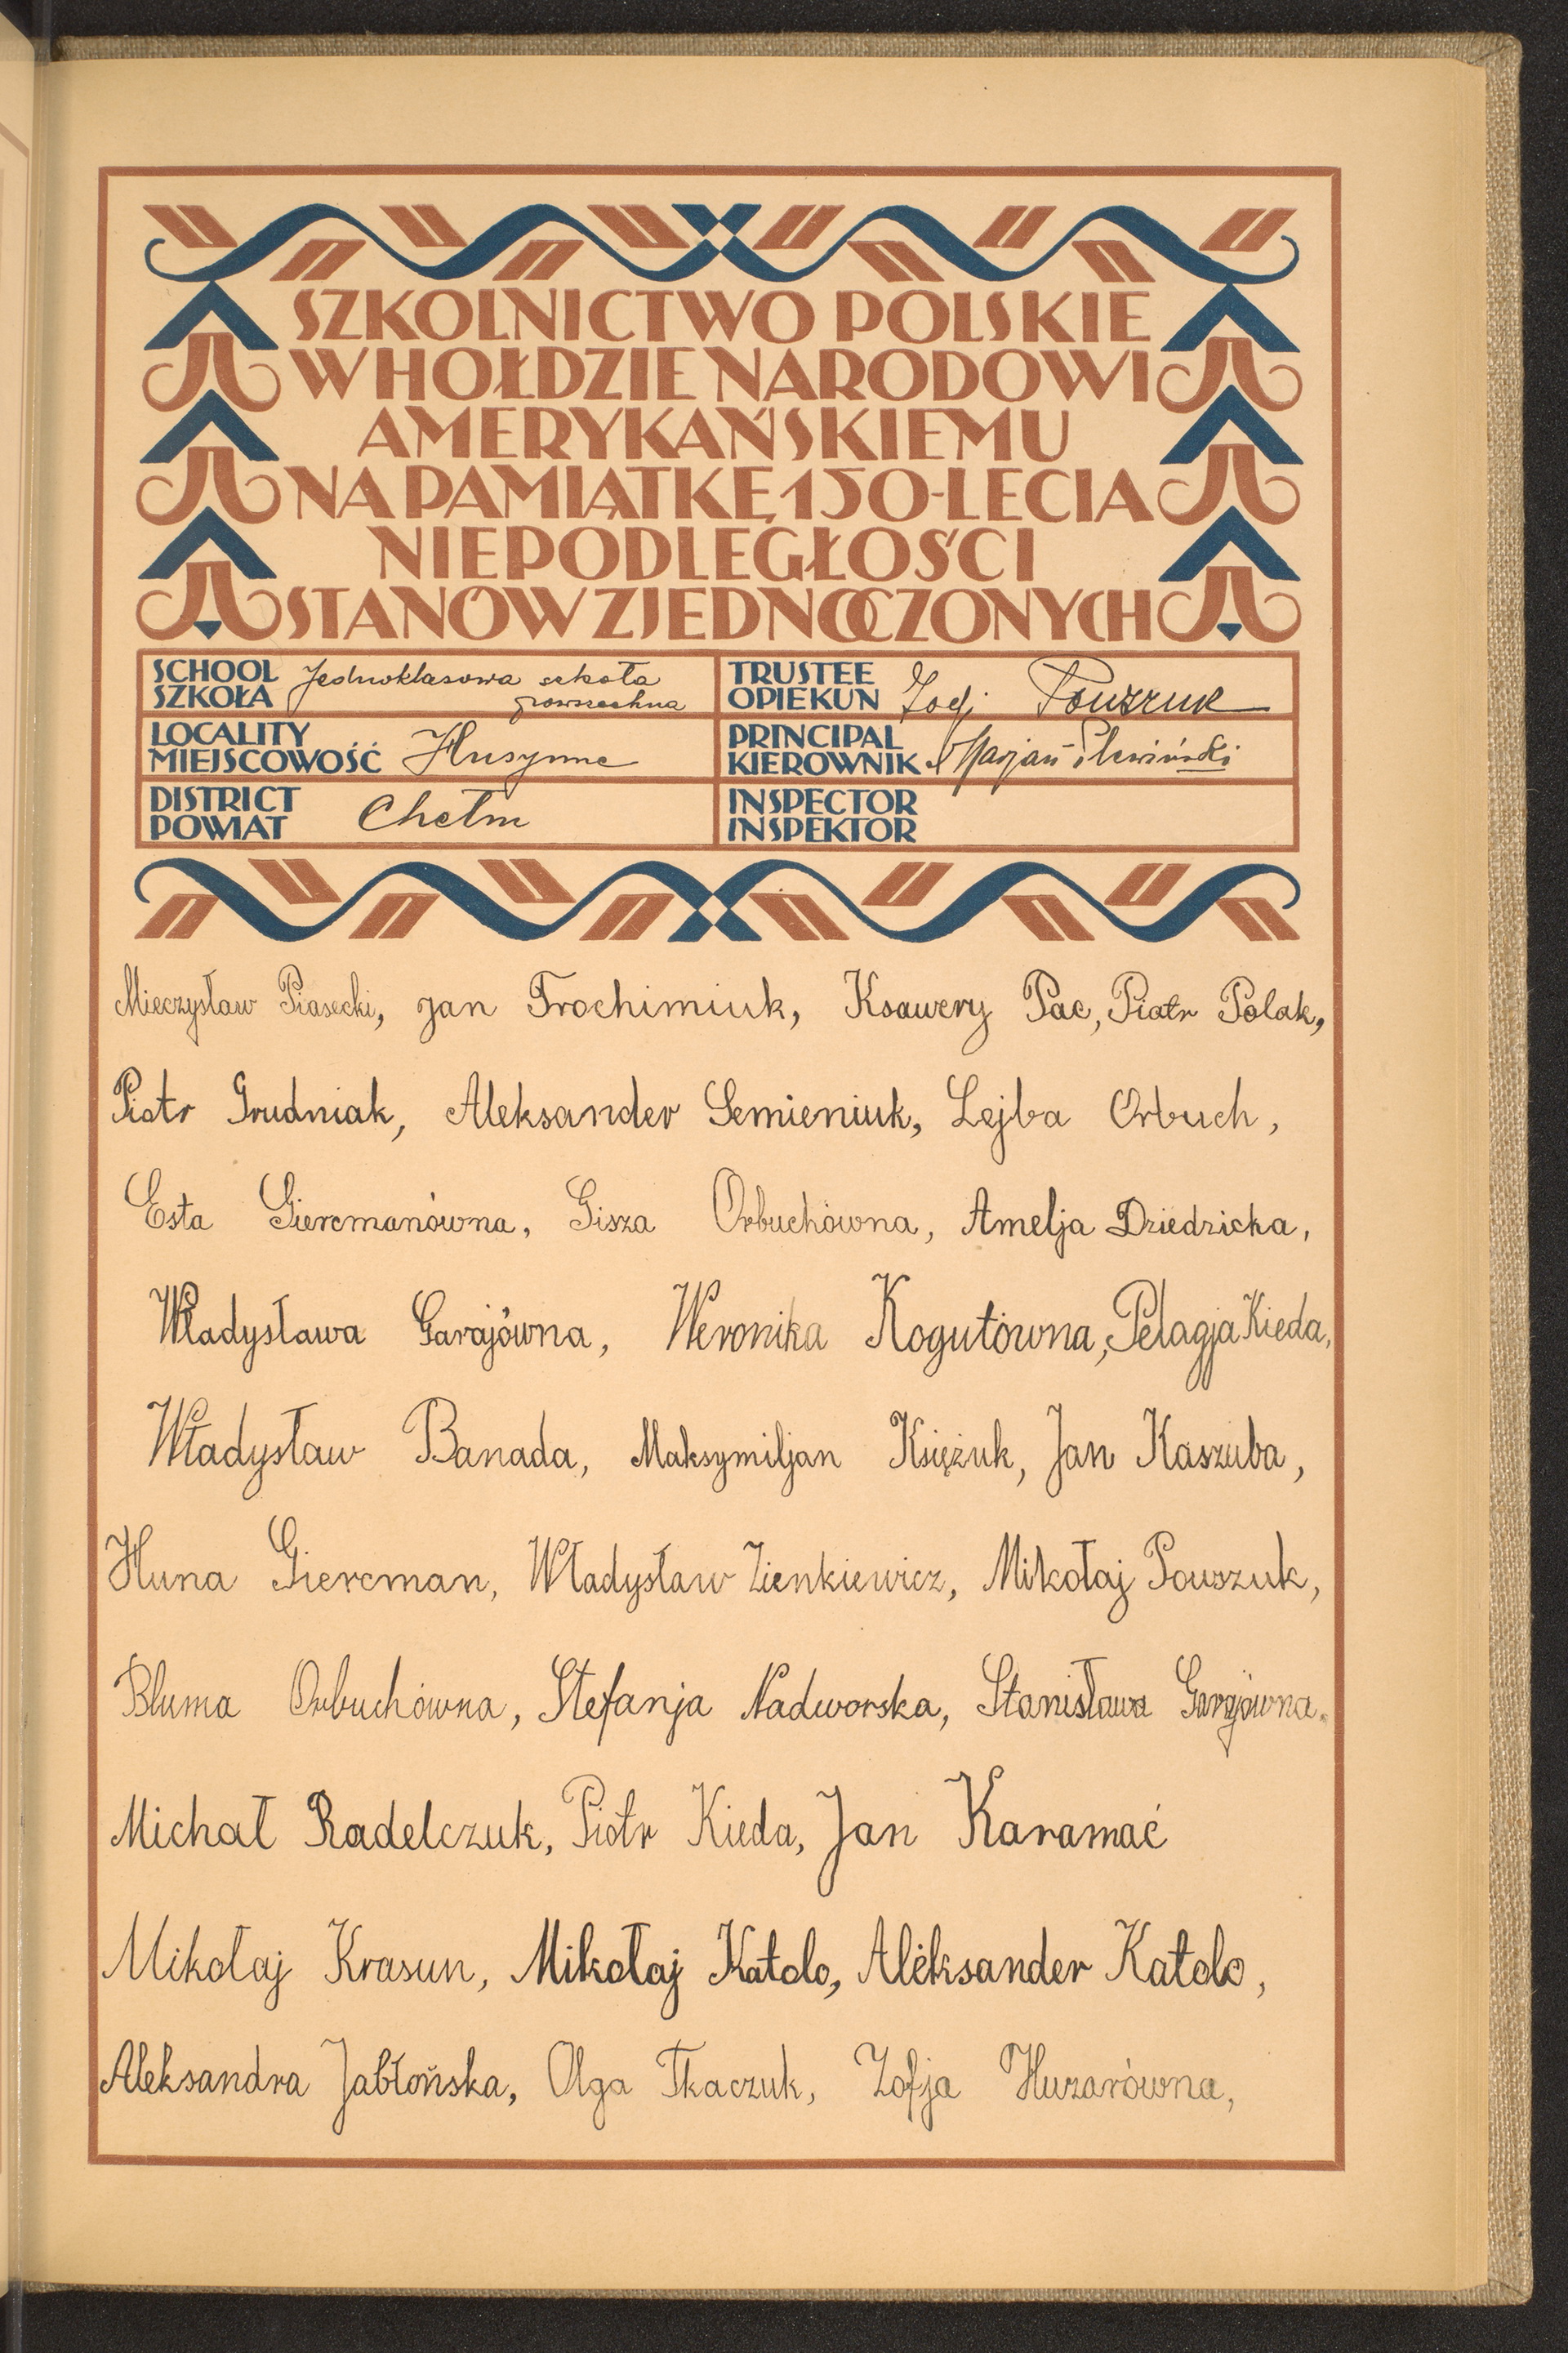 SZKOLNICTWO POLSKIE
W HOŁDZIE NARODOWI
AMERYKAŃSKIEMU
NA PAMIĄTKĘ 150-LECIA
NIEPODLEGŁOŚCI
STANÓW ZJEDNOCZONYCH
SCHOOL
SZKOŁA
Jednoklasowa szkoła
powszechna
TRUSTEE
OPIEKUN
LOCALITY
MIEJSCOWOŚĆ
Husynne
PRINCIPAL
KIEROWNIK
Marjan
DISTRICT
POWIAT
Chełm
INSPECTOR
INSPEKTOR
Mieczysław Piasecki, Jan Trochimiuk, Ksawery Pac, Piotr Polak,
Piotr Grudniak, Aleksander Semieniuk, Lejba Orbuch,
Esta Giercmanówna, Gisza Orbuchówna, Amelja Dziedzicka,
Władysława Garajówna, Weronika Kogutówna, Pelagja Kieda,
Władysław Banada, Maksymiljan Księżuk, Jan Kaszuba,
Huna Giercman, Władysław Zienkiewicz, Mikołaj Pouszuk,
Bluma Orbuchówna, Stefanja Nadworska, Stanisława Garajówna.
Michał Radelczuk, Piotr Kieda, Jan Karamać
Mikołaj Krasun, Mikołaj Katolo, Aleksander Katolo,
Aleksandra Jabłońska, Olga Tkaczuk, Zofja Huzarówna,